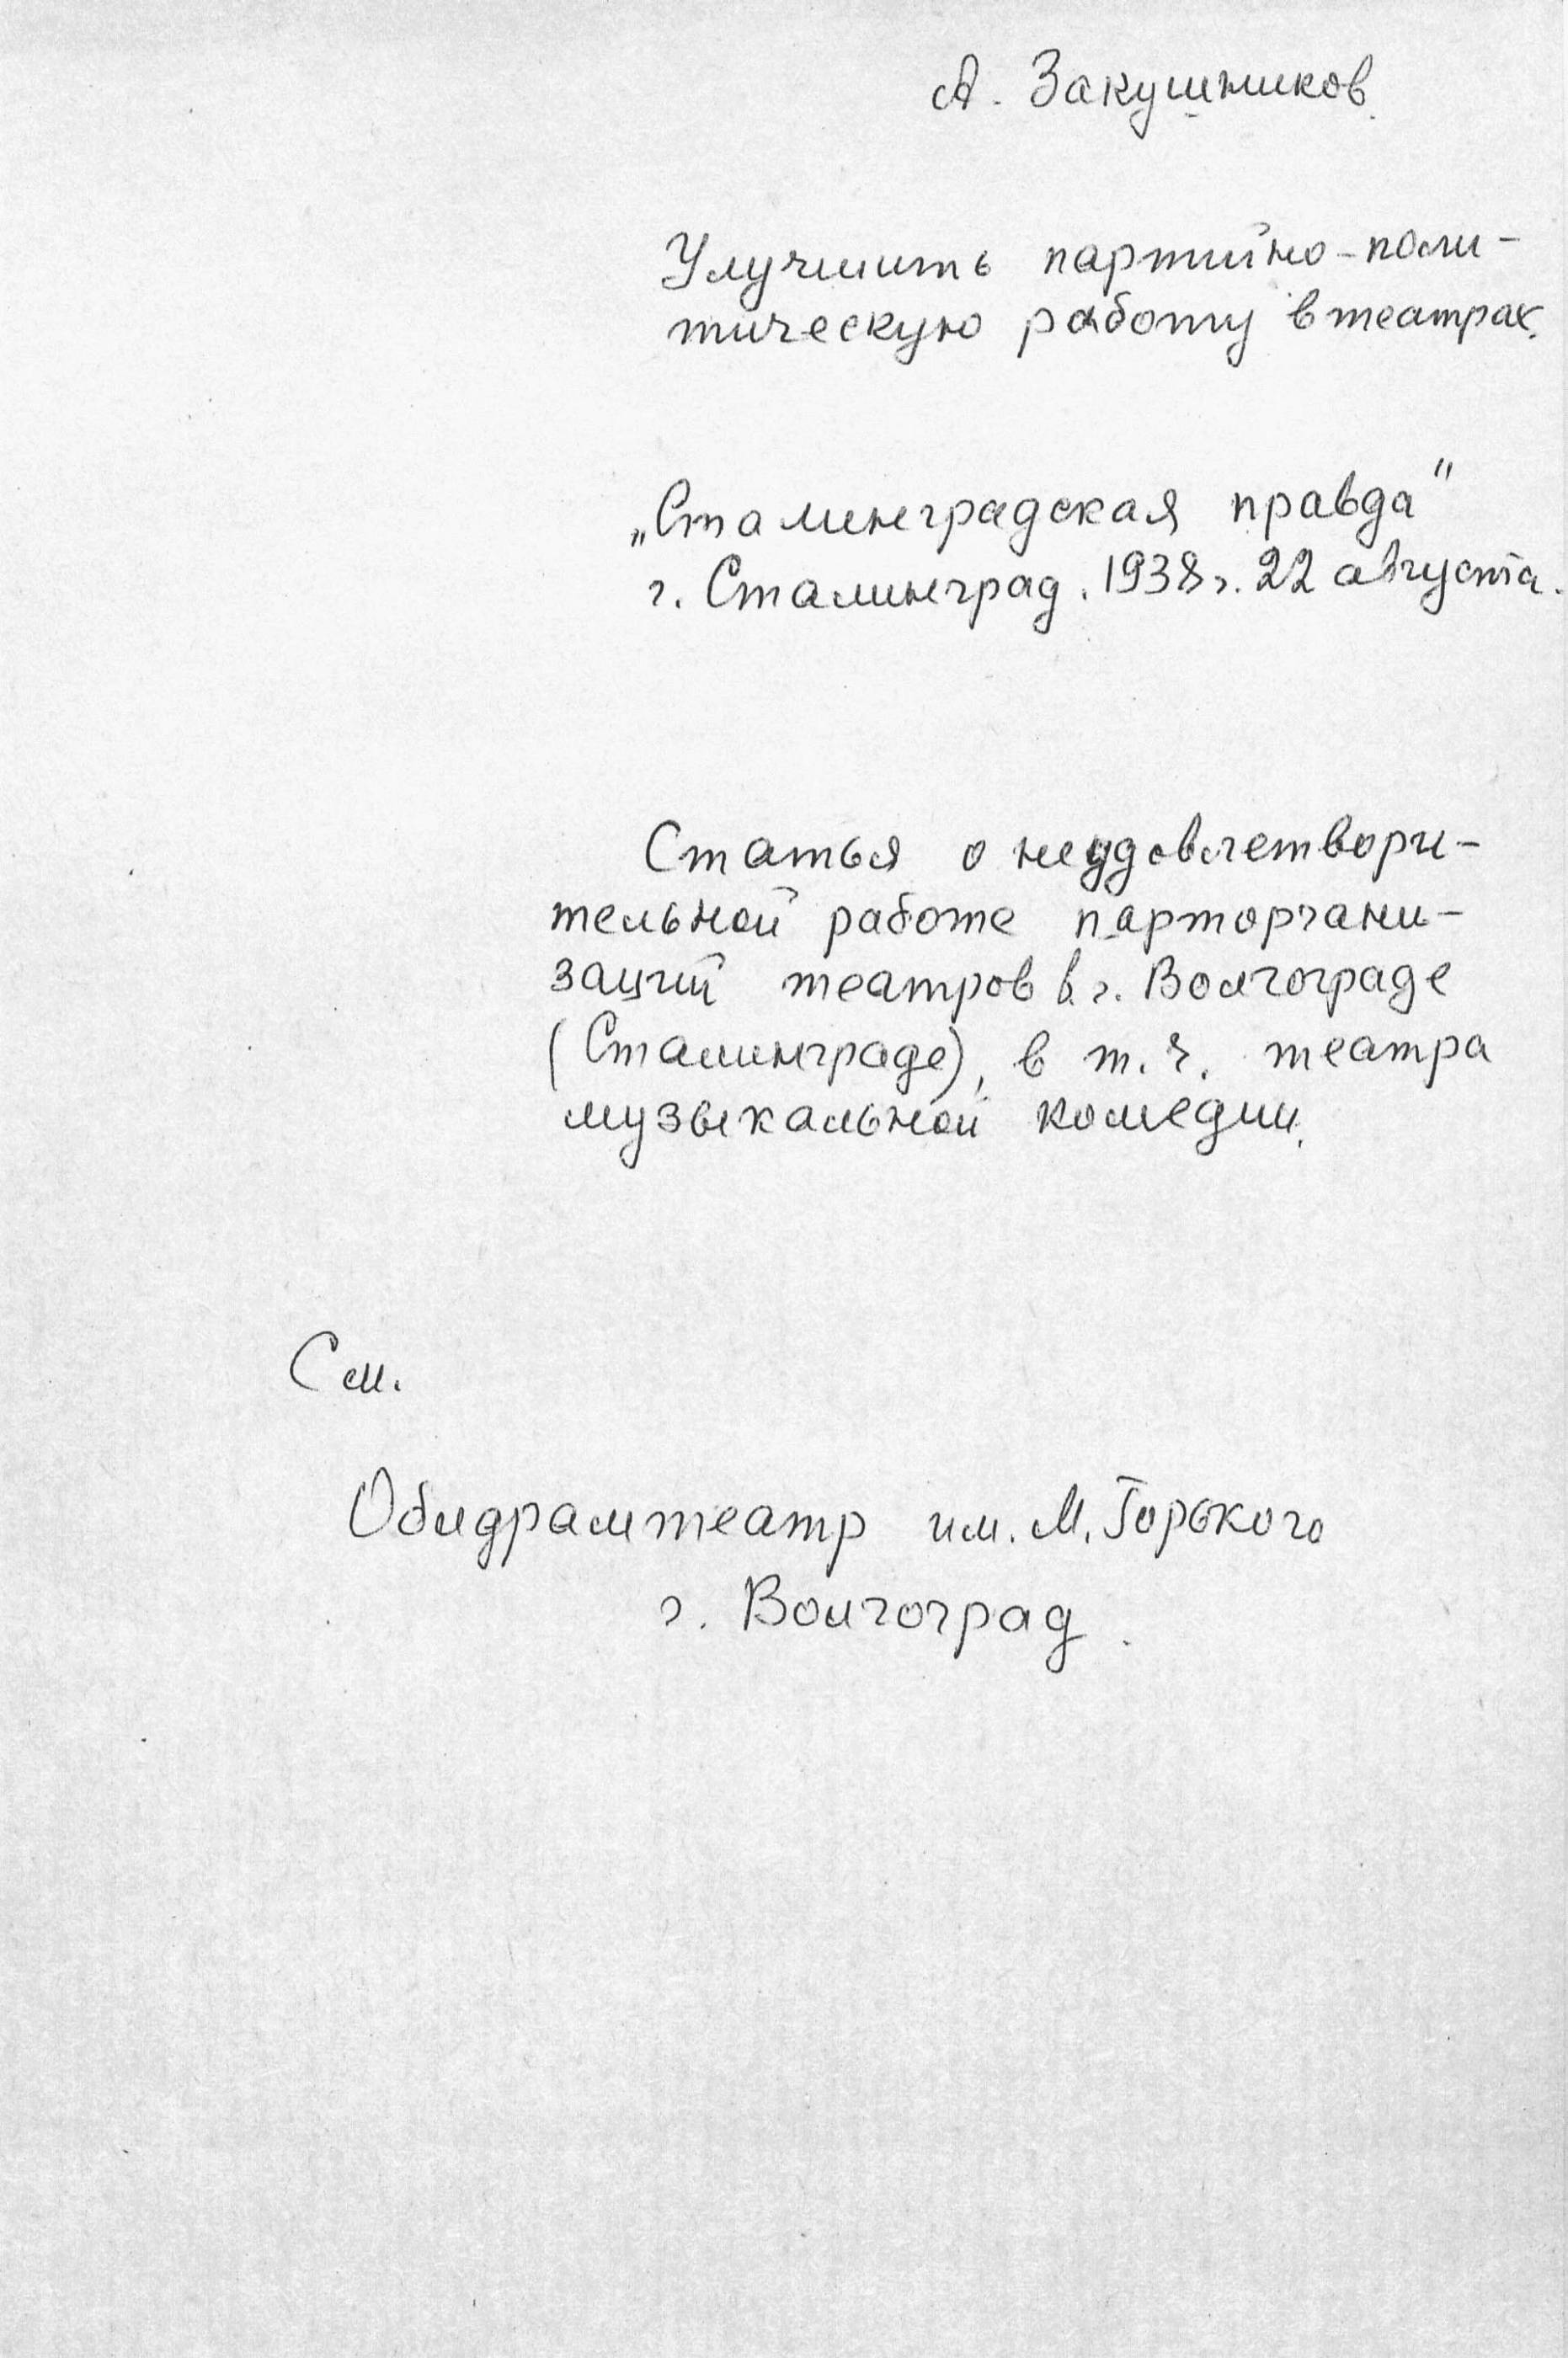 А. Закушников.
Улучшить партийно-поли-
тическую работу в театрах.
„Сталинградская правда"
г. Сталинград. 1938 г. 22 августа.
Статья о неудовлетвори-
тельной работе парторгани-
заций театров в г. Волгограде
(Сталинграде), в т.ч. театра
музыкальной комедии.
См.
Облдрамтеатр им. М. Горького
г. Волгоград.